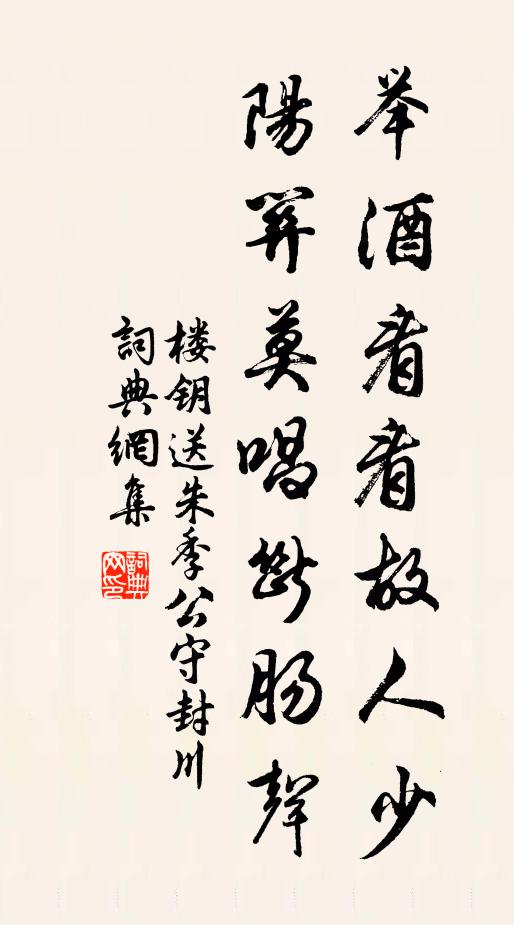 举酒看看故人少
陽关莫唱斷肠聲
楼钥送朱季公守封川
詞典網集
詞典网印